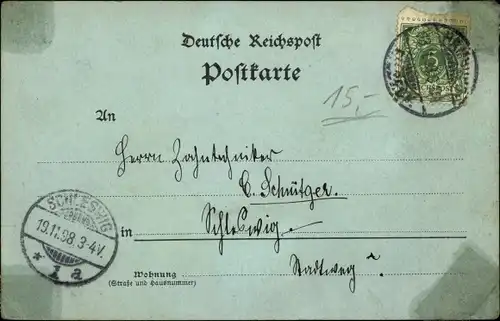 Deutsche Reichspost
Postkarte
15,-
An
Herrn Zahntechniker
C. Schnütger.
in Schleswig.
Stadtweg
Wohnung
(Straße und Hausnummer)
SCHLESWIG
19.11.98.3-4V.
* 1 a
5